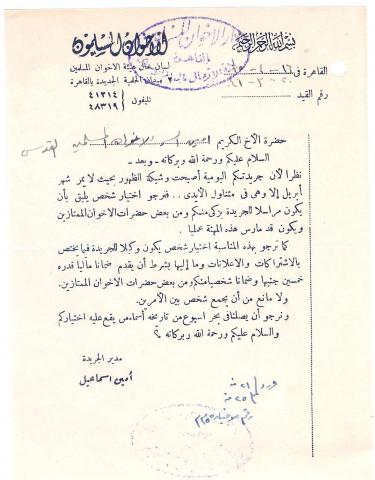 بسم الله الرحمن الرحيم
الاخوان المسلمون
لسان حال هيئة الاخوان المسلمين
ميدان الحلمية الجديدة بالقاهرة
تليفون
٤١٣١٤
٤٨٣١٩
القاهرة فى
رقم القيد
حضرة الأخ الكريم
السلام عليكم ورحمة الله وبركاته – وبعد –
نظرا لأن جريدتكم اليومية أصبحت وشيكة الظهور بحيث لا يمر شهر
أبريل إلا وهى فى متناول الأيدى.. فنرجو اختيار شخص يليق بأن
يكون مراسلا للجريدة بزكى منكم ومن بعض حضرات الاخوان الممتازين
ويكون قد مارس هذه المهنة عمليا .
كما نرجو بهذه المناسبة اختيار شخص يكون وكيلا للجريدة فيما يختص
بالاشتراكات والاعلانات وما إليها بشرط أن يقدم ضمانا ماليا قدره
خمسين جنيها وضمانا شخصيا منكم ومن بعض حضرات الاخوان الممتازين.
ولا مانع من أن يجمع شخص بين الأمرين.
ونرجو أن يصلنا فى بحر اسبوع من تاريخه أسماء من يقع عليه اختياركم
والسلام عليكم ورحمة الله وبركاته ؟
مدير الجريدة
أمين اسماعيل